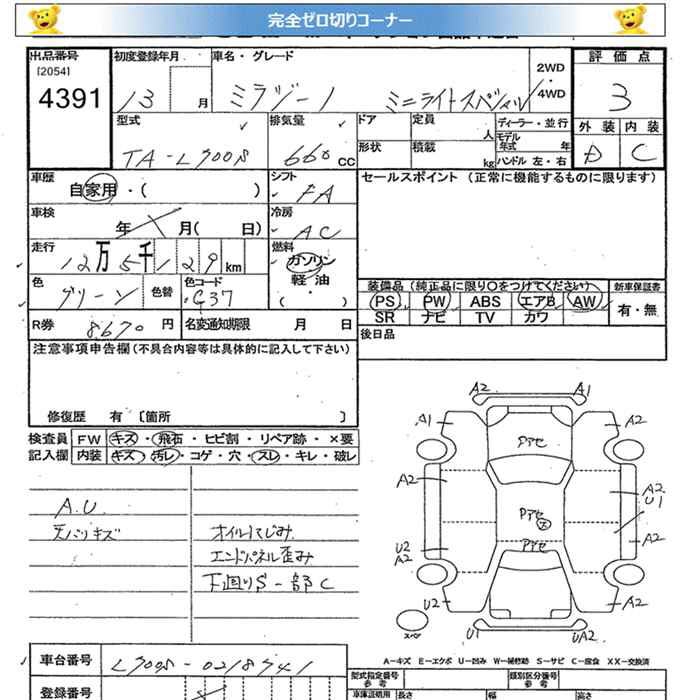 完全ゼロ切りコーナー
出品番号 初度登録年月 車名・グレード 2WD・4WD 評価点
[2054]
4391 13 月 ミラジーノ ミニライトスペシャル 3
型式 排気量 ドア 定員 人 ディーラー・並行 外装 内装
モデル年式 年
TA-L700S 660 CC 形状 積載 kg ハンドル 左・右 D C
車歴 自家用・( ) シフト FA セールスポイント (正常に機能するものに限ります)
車検 年 月( 日) 冷房 AC
走行 12万5千129km 燃料 ガソリン 軽油 ・( )
色 グリーン 色替 色コード G37
装備品 (純正品に限り○をつけてください) 新車保証書
PS PW ABS エアB AW 有・無
SR ナビ TV カワ
R券 8670 円 名変通知期限 月 日 後日品
注意事項申告欄 (不具合内容等は具体的に記入して下さい)
修復歴 有 [箇所 ]
検査員 FW キズ・飛石・ヒビ割・リペア跡・×要
記入欄 内装 キズ・汚レ・コゲ・穴・スレ・キレ・破レ
A.U
天バリキズ オイルにじみ
エンドパネル歪み
下廻りS一部C
A2 A1
A1 A2
Pアセ
A2 A2
U1
Pアセ
U2 Pアセ A2
A2
U2 A2
スペア U1 UA2
A-キズ E-エクボ U-凹み W-補修跡 S-サビ C-腐食 XX-交換済
車台番号 L700S-0218941 型式指定番号 参考 類別区分番号 参考
登録番号 車庫証明用 長さ 幅 高さ